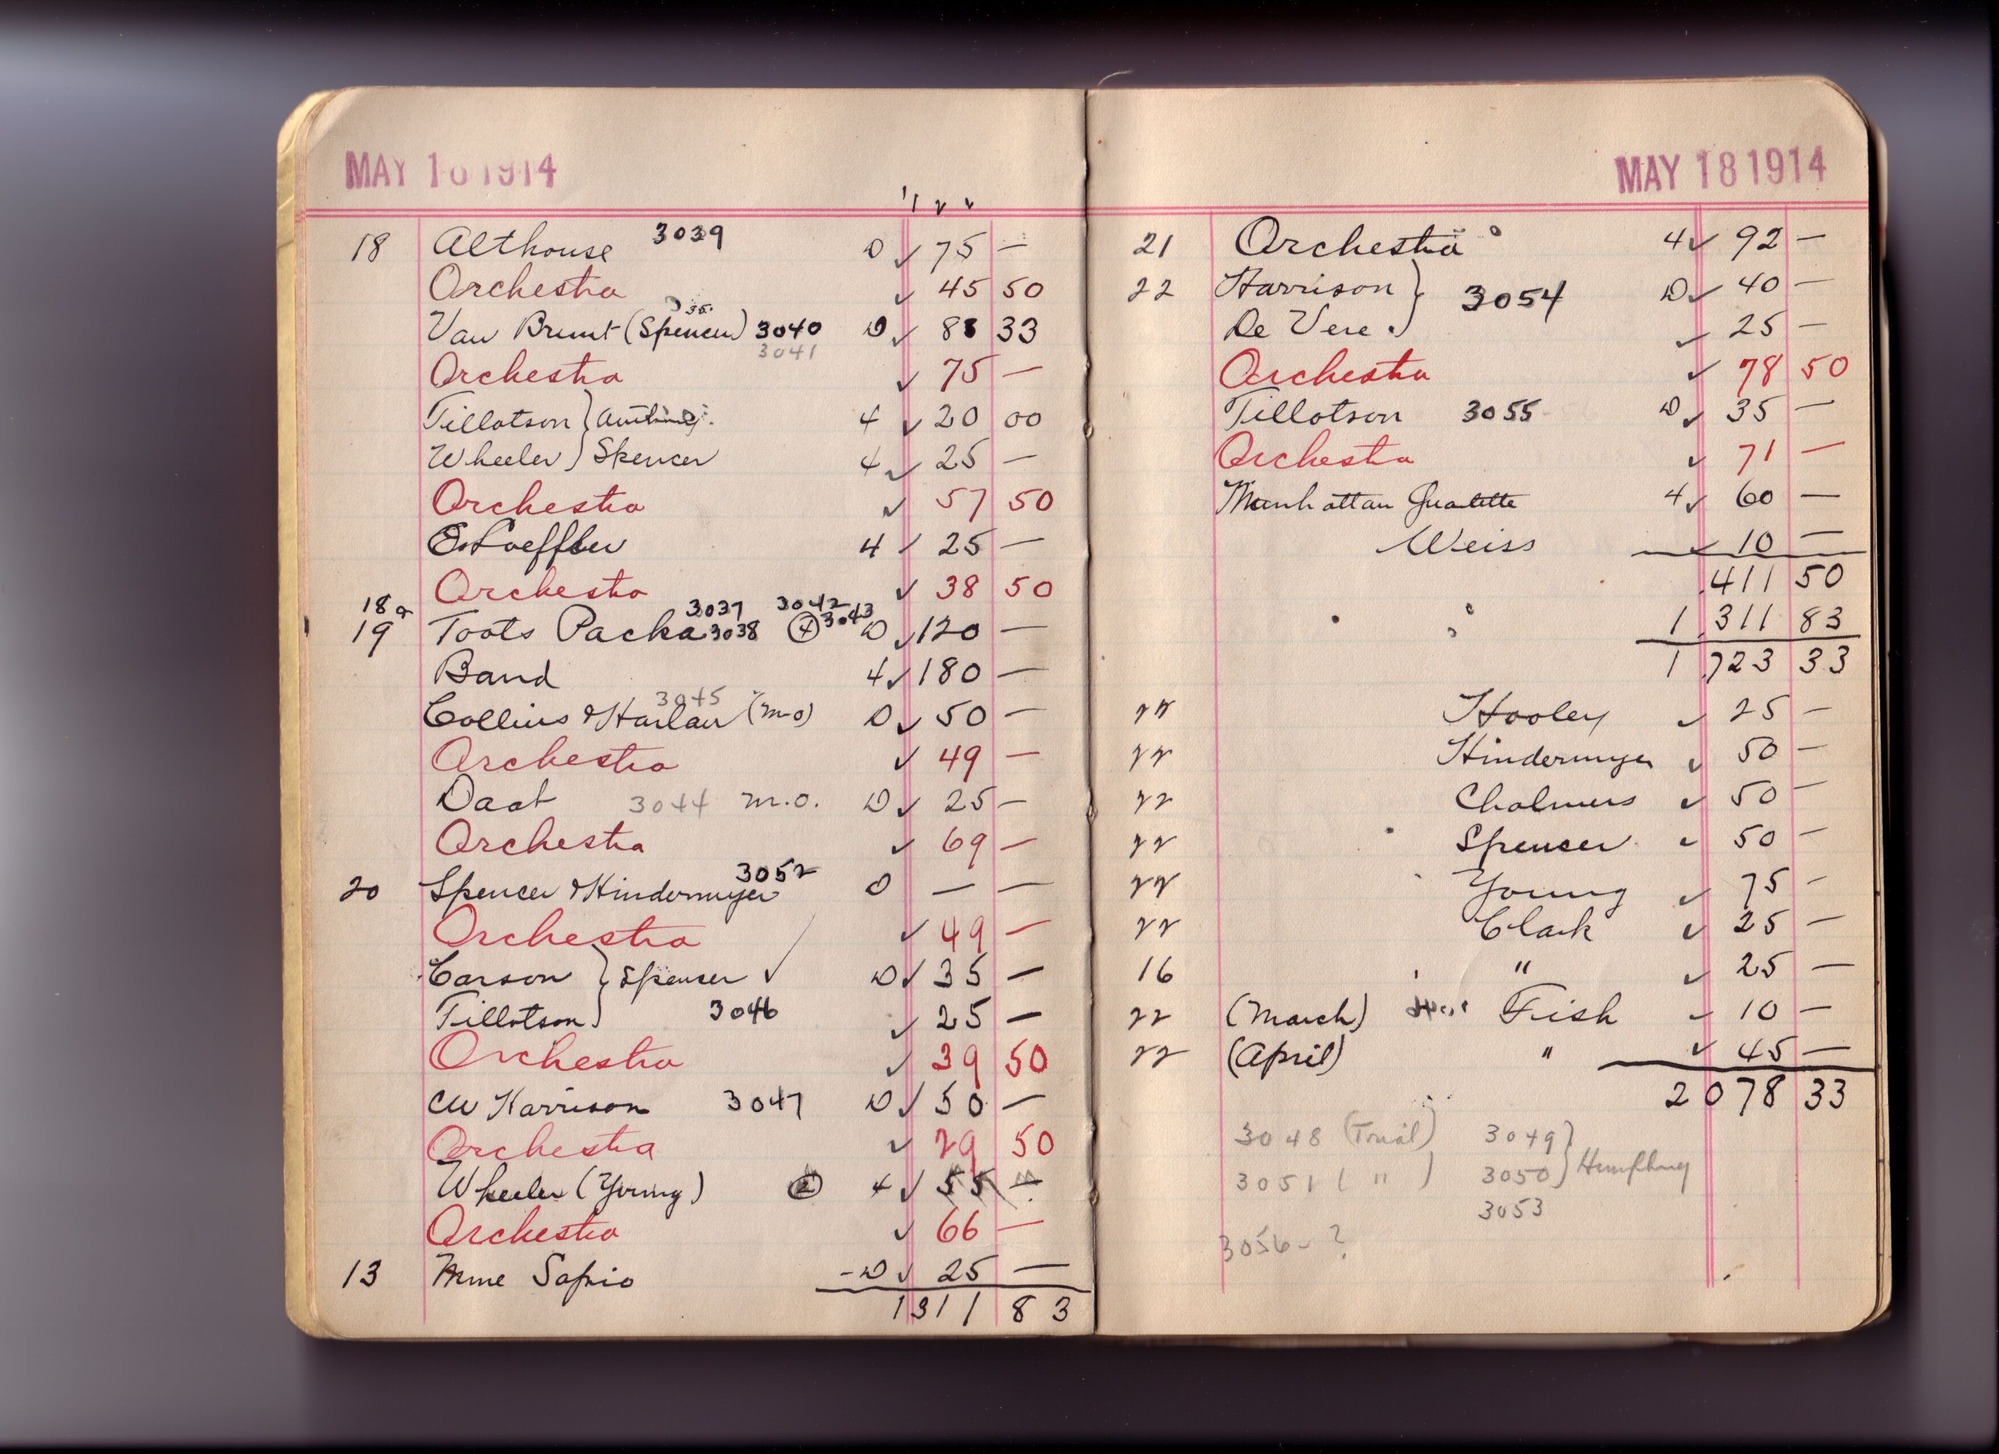 MAY 18 1914
18 Althouse 3039 D ✓ 75 —
Orchestra ✓ 45 50
35
Van Brunt (Spencer) 3040 D ✓ 88 33
3041
Orchestra ✓ 75 —
Tillotson } 4 ✓ 20 00
Wheeler } Spencer 4 ✓ 25 —
Orchestra ✓ 57 50
E. Loeffler 4 ✓ 25 —
Orchestra ✓ 38 50
18 & 3037 3042
19 Toots Packa 3038 (4) 3043 D ✓ 120 —
Band 4 ✓ 180 —
3045
Collins & Harlan (m.o) D ✓ 50 —
Orchestra ✓ 49 —
Daab 3044 m.o. D ✓ 25 —
Orchestra ✓ 69 —
3052
20 Spencer & Hindermyer D — —
Orchestra ✓ 49 —
Carson } Spencer ✓ D ✓ 35 —
Tillotson } 3046 ✓ 25 —
Orchestra ✓ 39 50
CW Harrison 3047 D ✓ 50 —
Orchestra ✓ 29 50
Wheeler (Young) (2) 4 ✓ 55 —
Orchestra ✓ 66 —
13 Mme Sapio - D ✓ 25 —
1311 83
MAY 18 1914
21 Orchestra 4 ✓ 92 —
22 Harrison } 3054 D ✓ 40 —
De Vere } ✓ 25 —
Orchestra ✓ 78 50
Tillotson 3055 D ✓ 35 —
Orchestra ✓ 71 —
Manhattan Quartette 4 ✓ 60 —
Weiss ✓ 10 —
411 50
1 311 83
1 723 33
22 Hooley ✓ 25 —
22 Hindermyer ✓ 50 —
22 Chalmers ✓ 50 —
22 Spencer ✓ 50 —
22 Young ✓ 75 —
22 Clark ✓ 25 —
16 " ✓ 25 —
22 (March) Fish ✓ 10 —
22 (April) " ✓ 45 —
2078 33
3048 (Trial) 3049 }
3051 ( " ) 3050 } Humphrey
3053
3056 - ?